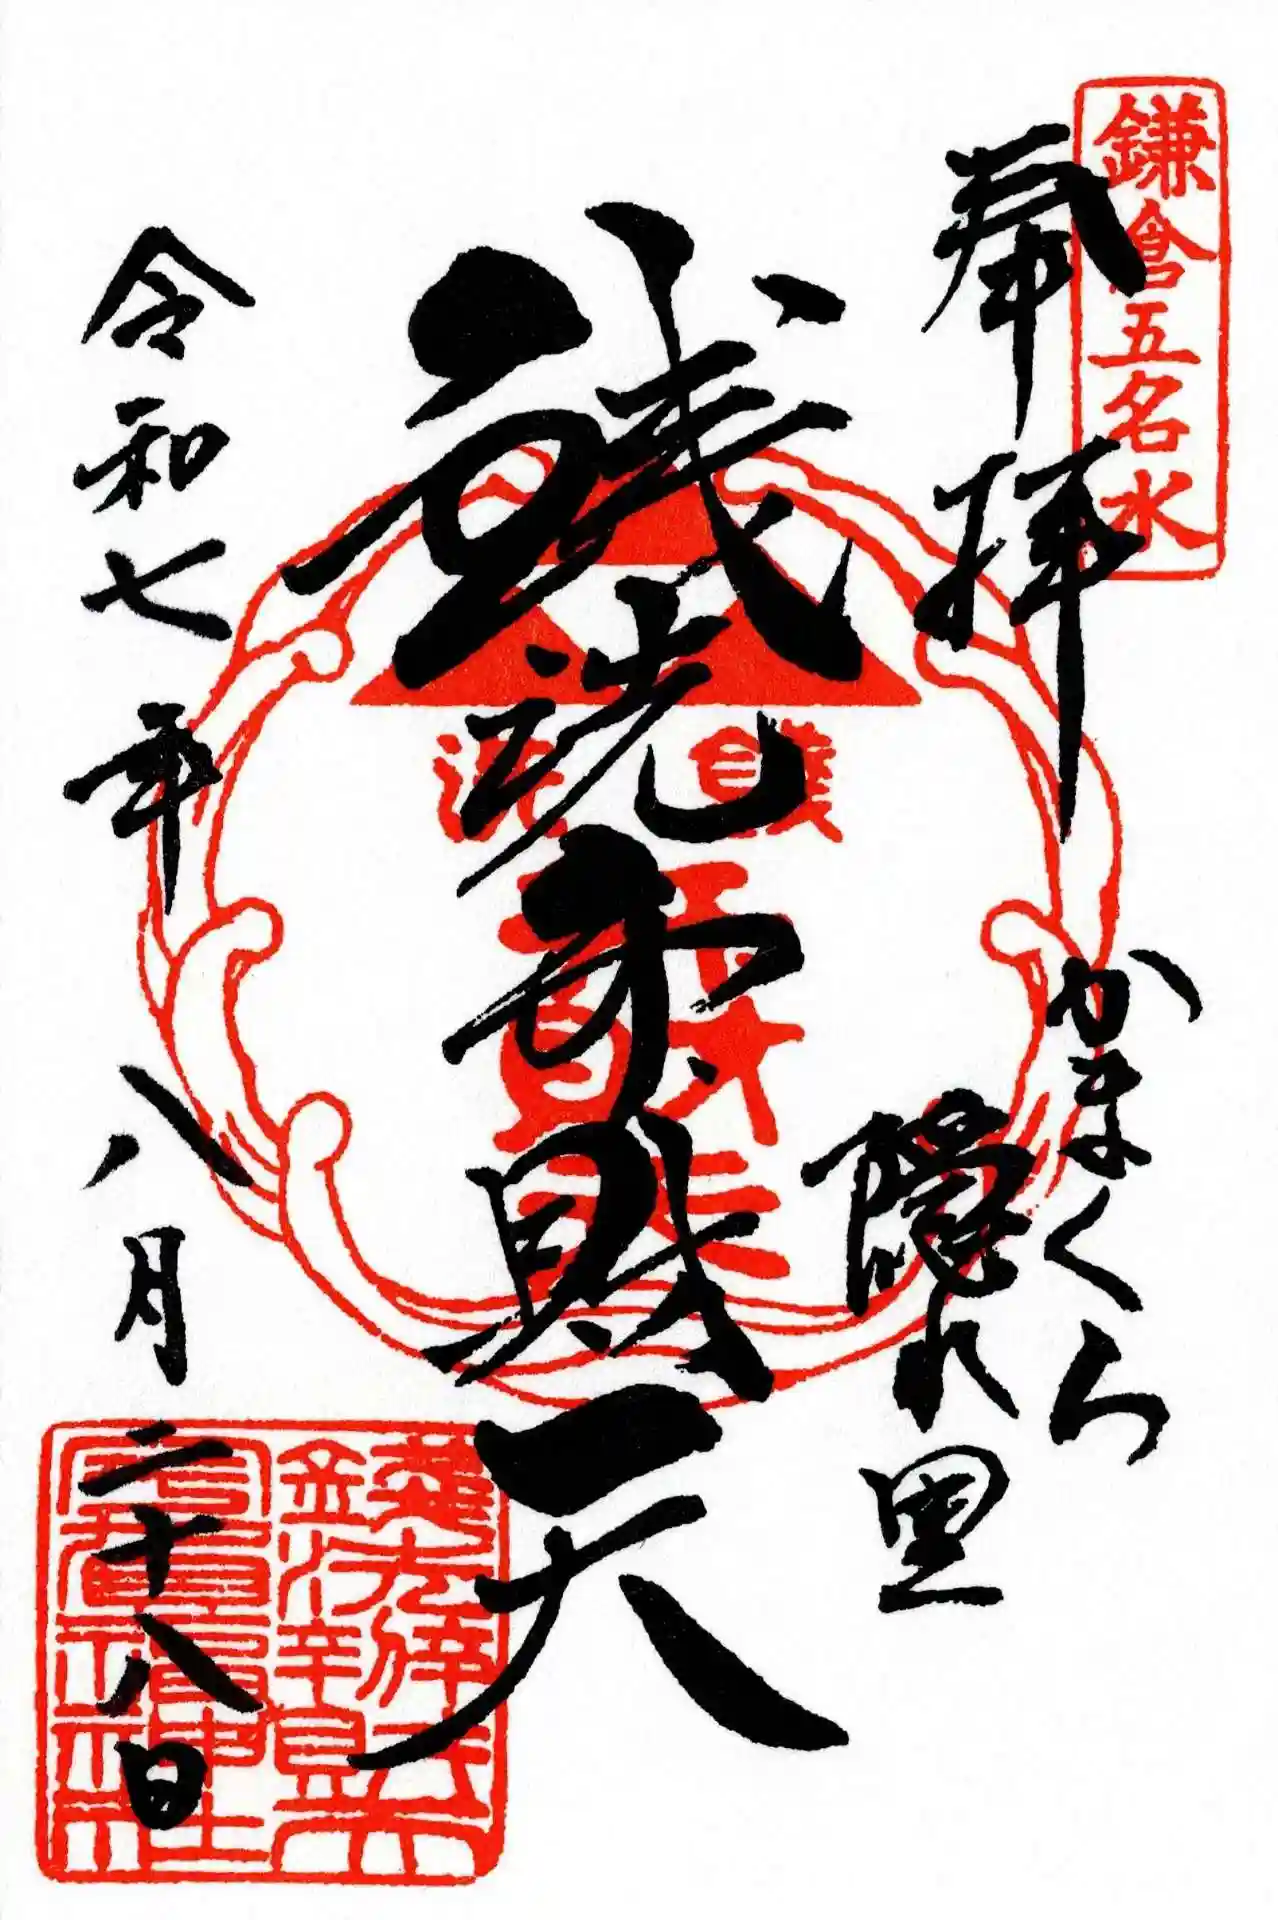 鎌倉五名水
奉拝
かまくら
隠れ里
銭洗弁財天
令和七年八月二十八日
銭洗
弁財天
銭洗弁財天
宇賀福神社